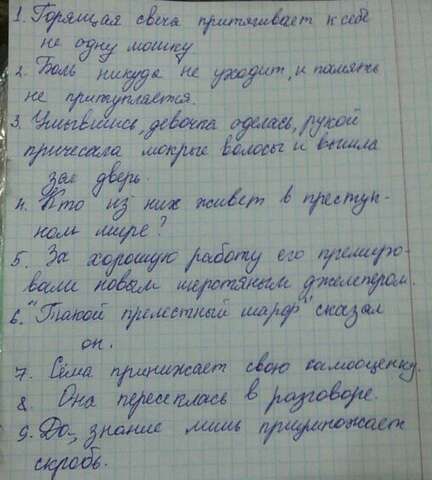 1. Горящая свеча притягивает к себе
не одну мошку
2. Боль никуда не уходит, и память
не притупляется.
3. Умывшись, девочка оделась, рукой
причесала мокрые волосы и вышла
зае дверь.
4. Кто из них живет в преступ-
ном мире?
5. За хорошую работу его премиро-
вали новым шерстяным джемпером.
6. "Такой прелестный шарф" сказал
он.
7. Сёма принижает свою самооценку.
8. Она пересеклась в разговоре.
9. Да-, знание лишь приумножает
скробь.